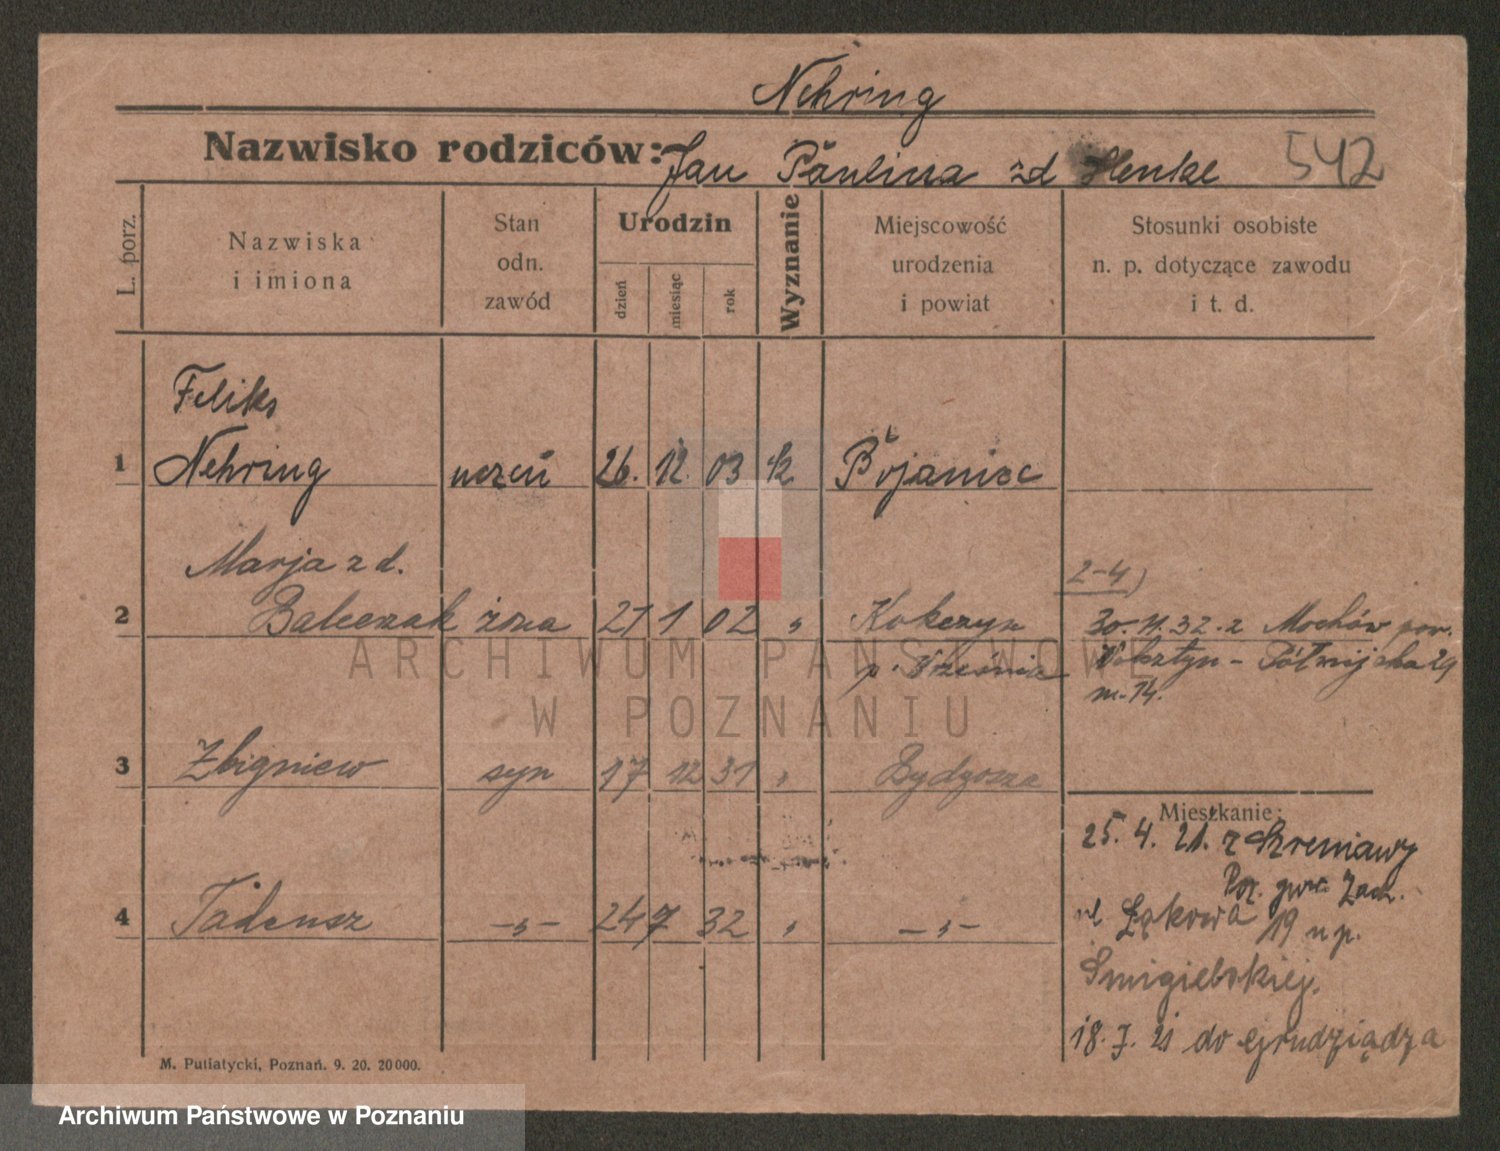 Nehring
Nazwisko rodziców: Jan Paulina zd Henke 542
L. porz.
Nazwiska
i imiona
Stan
odn.
zawód
Urodzin
dzień
miesiąc
rok
Wyznanie
Miejscowość
urodzenia
i powiat
Stosunki osobiste
n. p. dotyczące zawodu
i t. d.
Feliks
1 Nehring uczeń 26. 12. 03 k Bojaniec
Marja z d.
2 Balczak żona 21 1 02 „ Kokczyn
p. Września
2-4)
30.11.32. z Mochów pow.
Wolsztyn - Półwiejska 29
m. 14.
3 Zbigniew syn 17 12 31 „ Bydgoszcz
4 Tadeusz -„- 24 7 32 „ -„-
Mieszkanie:
25. 4. 21. z Skreniawy
Poz. zach.
ul Łąkowa 19 u p.
Smigielskiej.
18. 7. 21 do Grudziądza
M. Putiatycki, Poznań. 9. 20. 20000.
ARCHIWUM PAŃSTWOWE
W POZNANIU
Archiwum Państwowe w Poznaniu